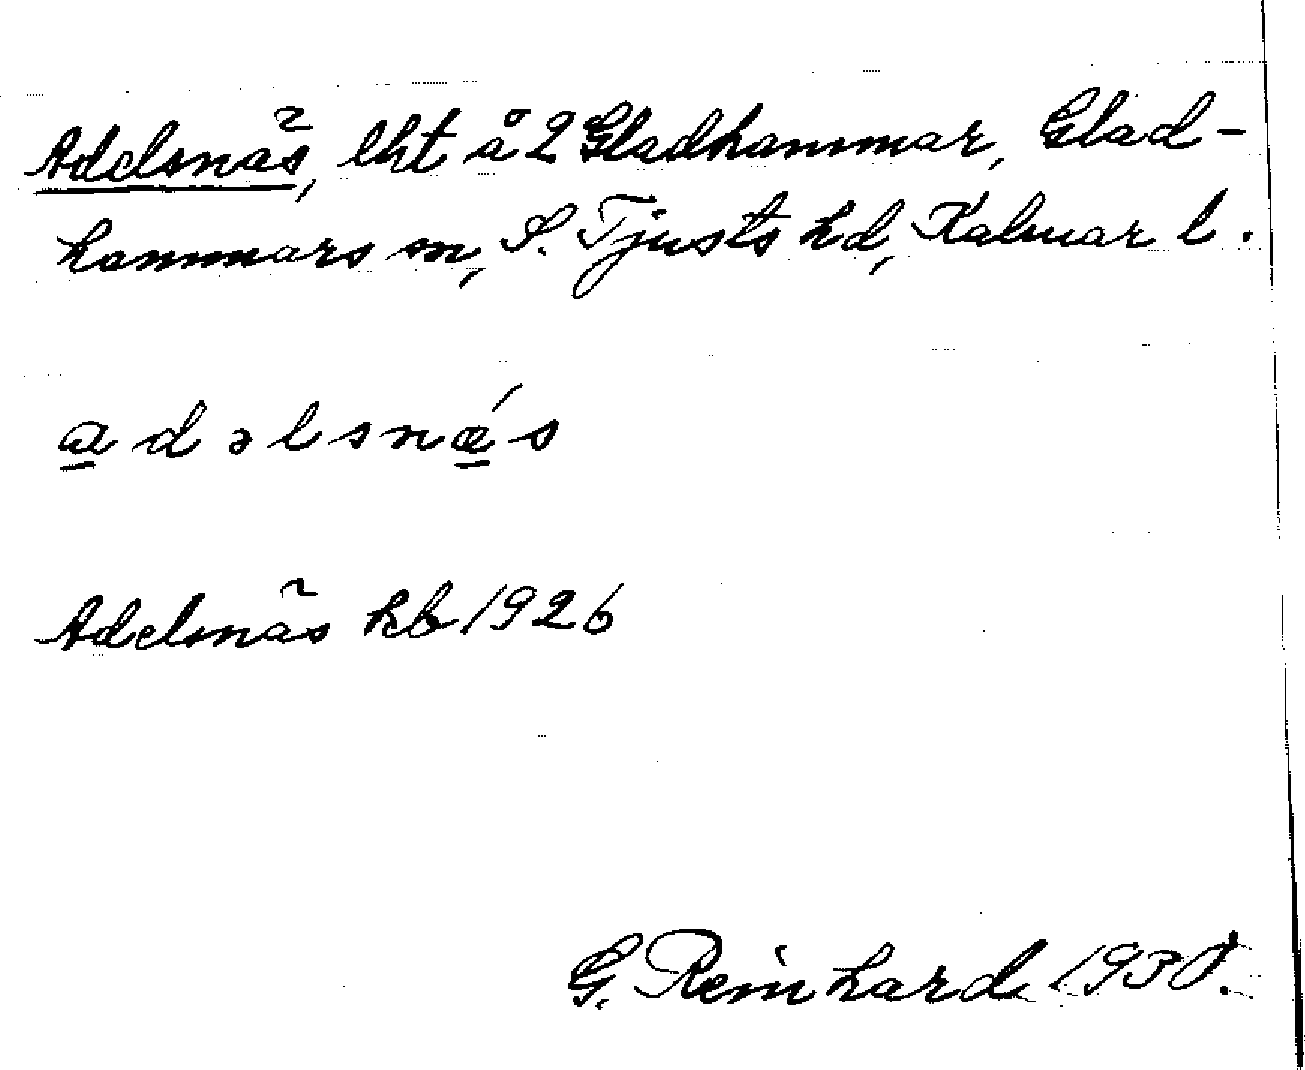 Adelsnäs, lht å 2 Gladhammar, Glad-
hammars sn, S. Tjusts hd, Kalmar l.
a d ə l s n ǽ s
Adelsnäs kb 1926
G. Reinhard 1930.